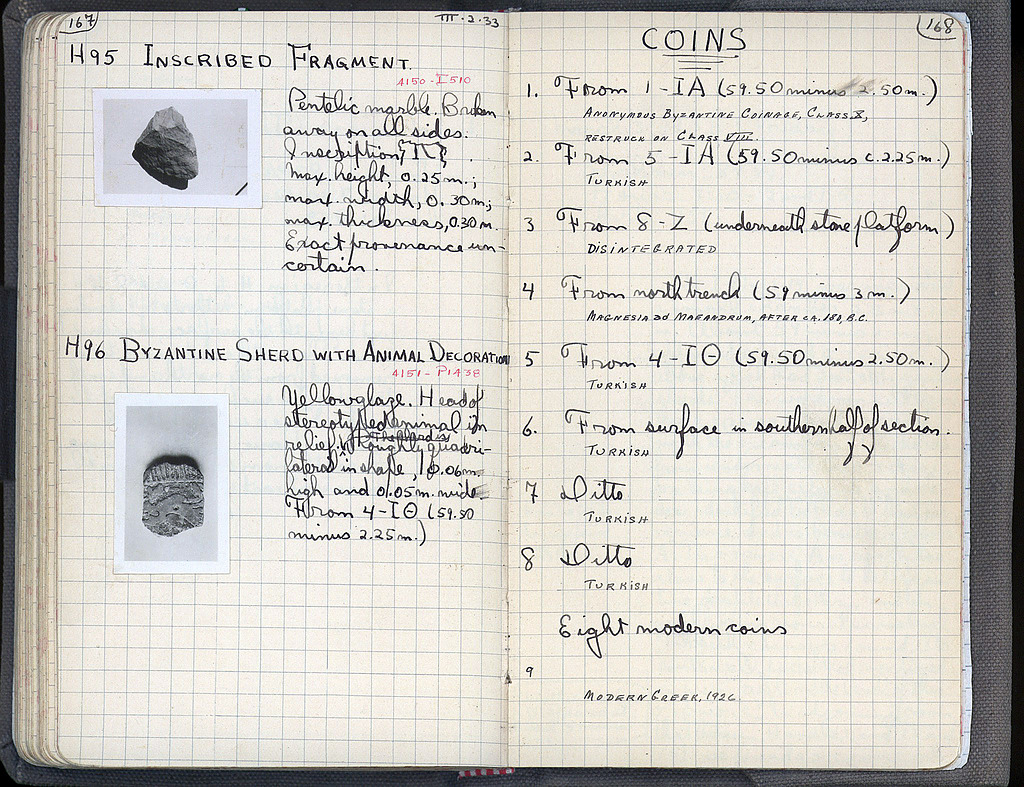 167
III·2·33
H95 INSCRIBED FRAGMENT.
4150-I510
Pentelic marble. Broken
away on all sides.
Inscription,
Max. height, 0.25m.;
max. width, 0.30m.;
max. thickness, 0.30m.
Exact provenance un-
certain.
H96 BYZANTINE SHERD WITH ANIMAL DECORATION
4151-P1438
Yellow glaze. Head of
stereotyped animal in
relief. The sherd is
roughly quadri-
lateral in shape, 0.06m.
high and 0.05m. wide
From 4-ΙΘ (59.50
minus 2.25m.)
168
COINS
1. From 1-ΙΑ (59.50 minus 2.50m.)
ANONYMOUS BYZANTINE COINAGE, CLASS X,
RESTRUCK ON CLASS VIII.
2. From 5-ΙΑ (59.50 minus c. 2.25m.)
TURKISH
3 From 8-Z (underneath stone platform)
DISINTEGRATED
4 From north trench (59 minus 3m.)
MAGNESIA ad MAEANDRUM, AFTER CA. 190, B.C.
5 From 4-ΙΘ (59.50 minus 2.50m.)
TURKISH
6. From surface in southern half of section.
TURKISH
7 Ditto
TURKISH
8 Ditto
TURKISH
Eight modern coins
9
MODERN GREEK, 1926